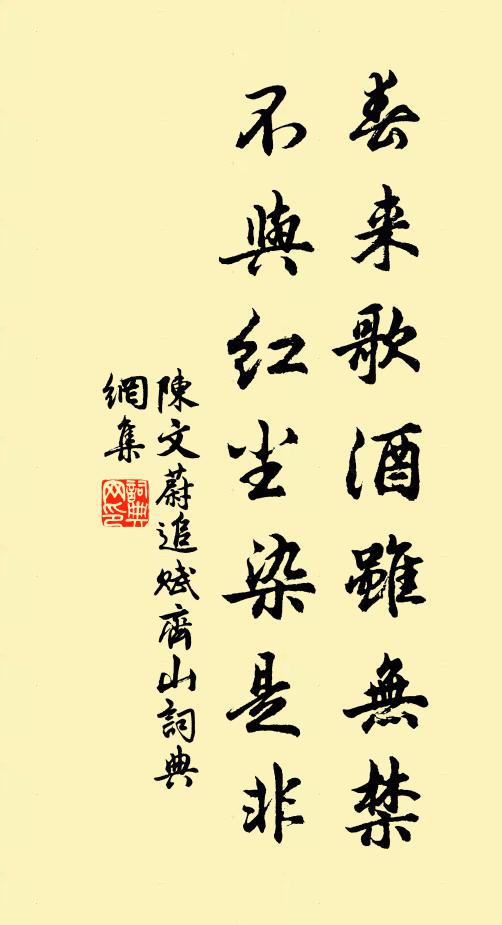 春来歌酒雖無禁
不與紅尘染是非
陳文蔚追賦齊山詞典
網集
詞典網印